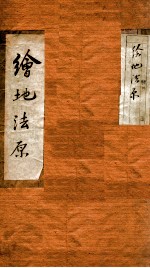 繪地法原
繪地法原